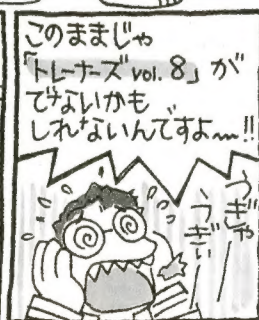 このままじゃ
「トレーナーズvol.8」が
でないかも
しれないんですよ〜!!
うぎゃ
うぎぃ